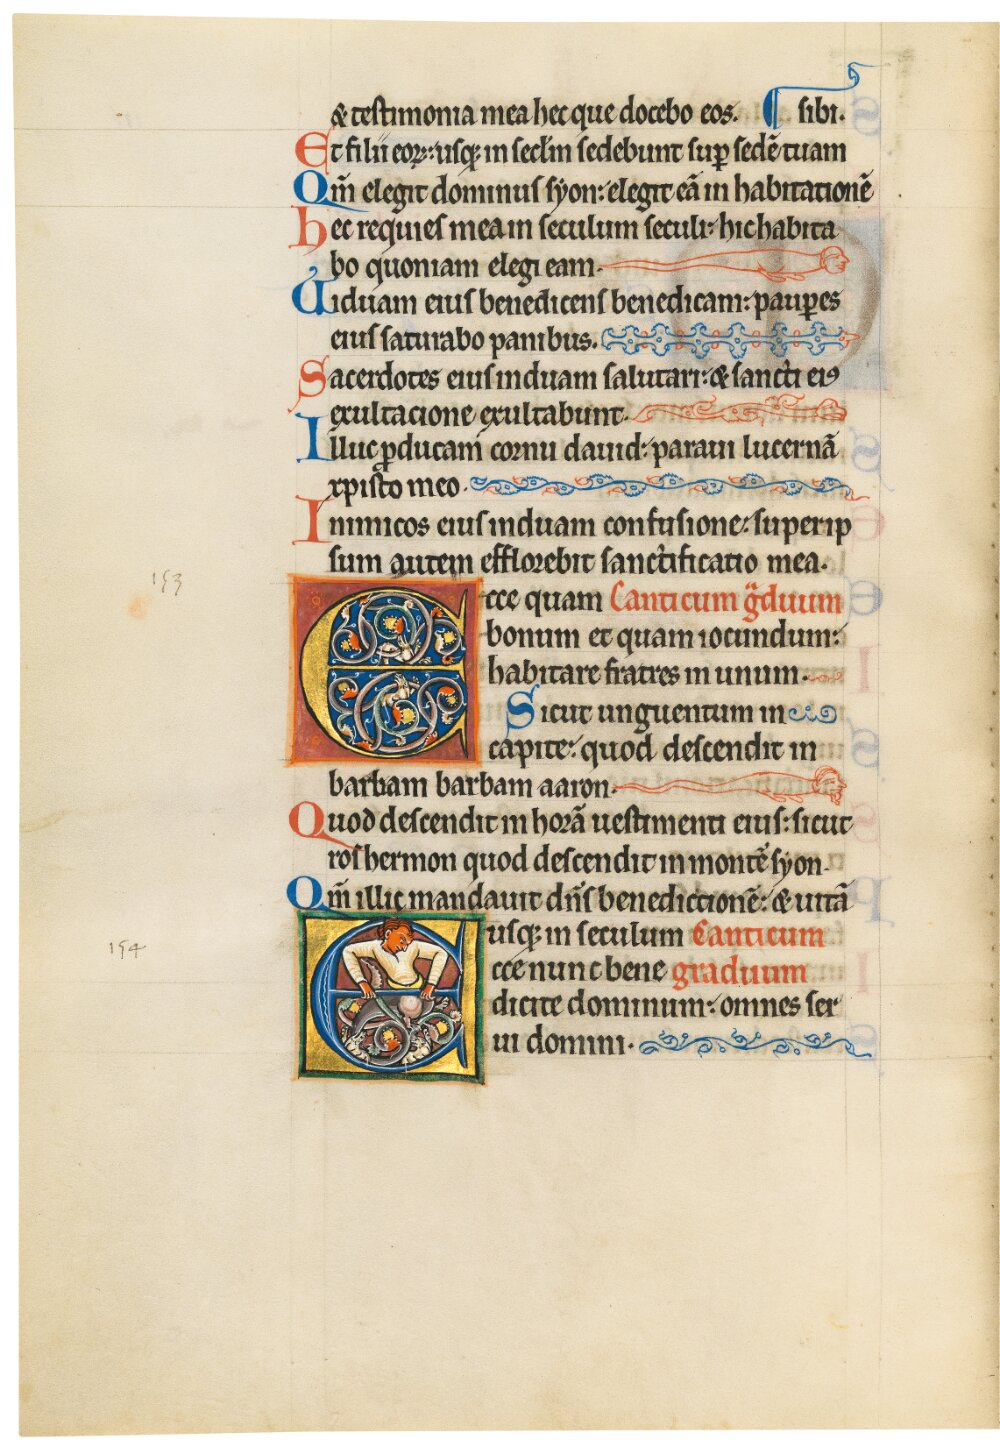 & testimonia mea hec que docebo eos. ¶ sibi.
Et filii eoꝝ: usqꝫ in sec̄lm sedebunt suꝑ sedē tuam
Qm̄ elegit dominus syon: elegit eā in habitationē
hec requies mea in seculum seculi: hic habita
bo quoniam elegi eam.
Uiduam eius benedicens benedicam: pauꝑes
eius saturabo panibus.
Sacerdotes eius induam salutari: & sancti eiꝰ
exultacione exultabunt.
Illuc ꝓducam cornu dauid: paraui lucernā
xp̄isto meo.
Inimicos eius induam confusione: super ip
sum autem efflorebit sanctificatio mea.
Ecce quam Canticum g̃duum
bonum et quam iocundum:
habitare fratres in unum.
Sicut unguentum in
capite: quod descendit in
barbam barbam aaron.
Quod descendit in horā uestimenti eius: sicut
ros hermon quod descendit in montē syon.
Qm̄ illic mandauit dn̄s benedictionē: & uitā
usqꝫ in seculum Canticum
Ecce nunc bene graduum
dicite dominum: omnes ser
ui domini.
153
154